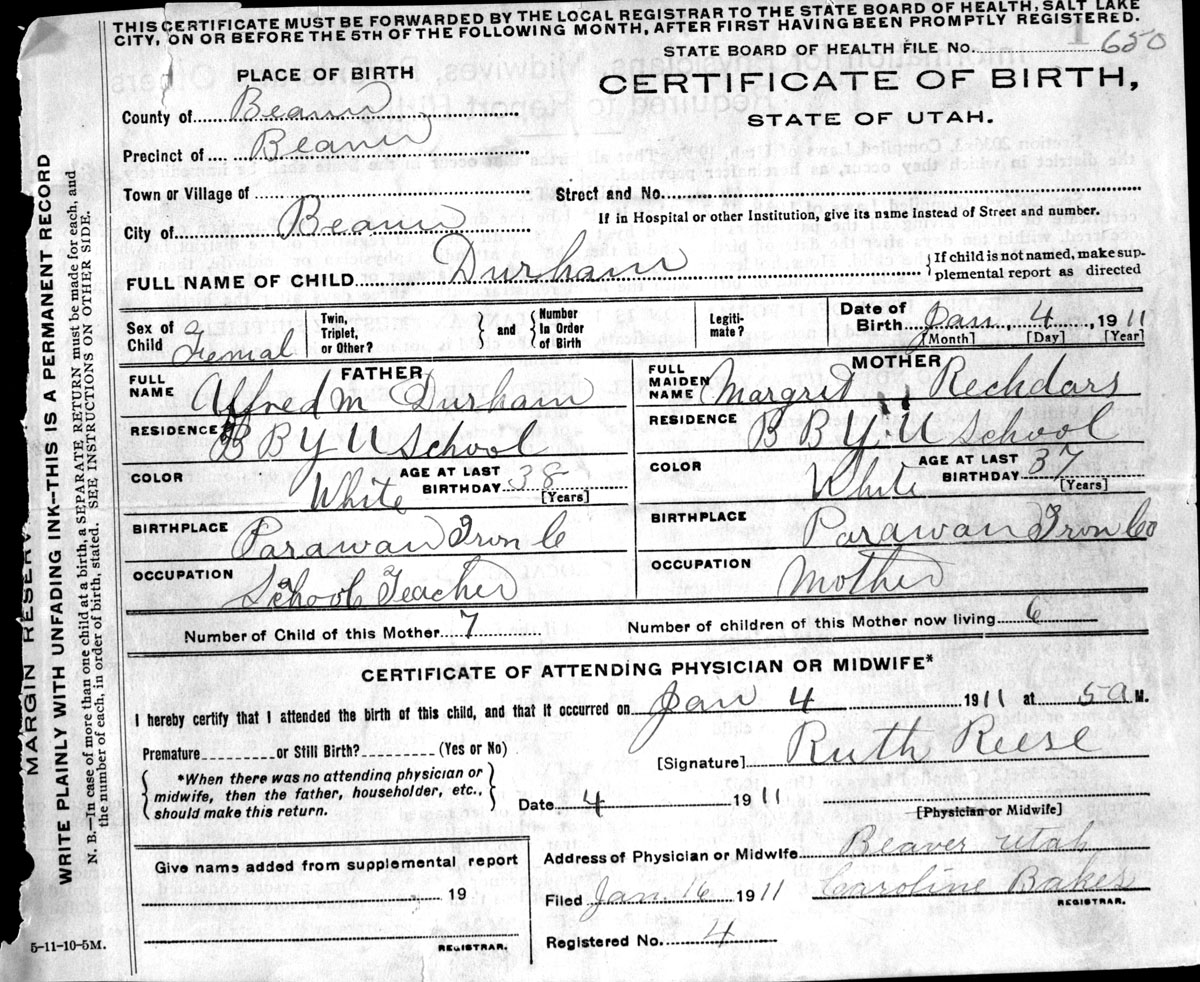 THIS CERTIFICATE MUST BE FORWARDED BY THE LOCAL REGISTRAR TO THE STATE BOARD OF HEALTH, SALT LAKE
CITY, ON OR BEFORE THE 5TH OF THE FOLLOWING MONTH, AFTER FIRST HAVING BEEN PROMPTLY REGISTERED.
STATE BOARD OF HEALTH FILE No. 650
PLACE OF BIRTH
CERTIFICATE OF BIRTH,
STATE OF UTAH.
County of Beaver
Precinct of Beaver
Town or Village of
Street and No.
City of Beaver
If in Hospital or other Institution, give its name Instead of Street and number.
FULL NAME OF CHILD Durham
If child is not named, make supplemental report as directed
Sex of Child Femal
Twin, Triplet, or Other?
and
Number In Order of Birth
Legitimate?
Date of Birth Jan 4, 1911
[Month] [Day] [Year]
FATHER
FULL NAME Alfred M Durham
RESIDENCE B B Y U School
COLOR White
AGE AT LAST BIRTHDAY 38
[Years]
BIRTHPLACE Parawan Iron Co
OCCUPATION School Teacher
MOTHER
FULL MAIDEN NAME Margrit Rechdars
RESIDENCE B B Y U School
COLOR White
AGE AT LAST BIRTHDAY 37
[Years]
BIRTHPLACE Parawan Iron Co
OCCUPATION Mother
Number of Child of this Mother 7
Number of children of this Mother now living 6
CERTIFICATE OF ATTENDING PHYSICIAN OR MIDWIFE*
I hereby certify that I attended the birth of this child, and that it occurred on Jan 4 1911 at 5 a M.
Premature or Still Birth? (Yes or No)
[Signature] Ruth Reese
*When there was no attending physician or
midwife, then the father, householder, etc.,
should make this return.
Date 4 1911
[Physician or Midwife]
Give name added from supplemental report
19
REGISTRAR.
Address of Physician or Midwife Beaver Utah
Filed Jan. 16 1911 Caroline Baker
REGISTRAR.
Registered No. 4
5-11-10-5M.
MARGIN RESERV
WRITE PLAINLY WITH UNFADING INK—THIS IS A PERMANENT RECORD
N. B.—In case of more than one child at a birth, a SEPARATE RETURN must be made for each, and
the number of each, in order of birth, stated. SEE INSTRUCTIONS ON OTHER SIDE.